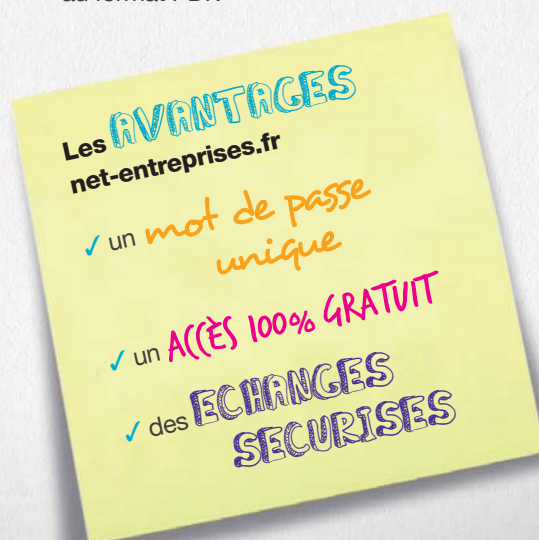 Les AVANTAGES
net-entreprises.fr
✓ un mot de passe
unique
✓ un ACCÈS 100% GRATUIT
✓ des ECHANGES
SECURISES